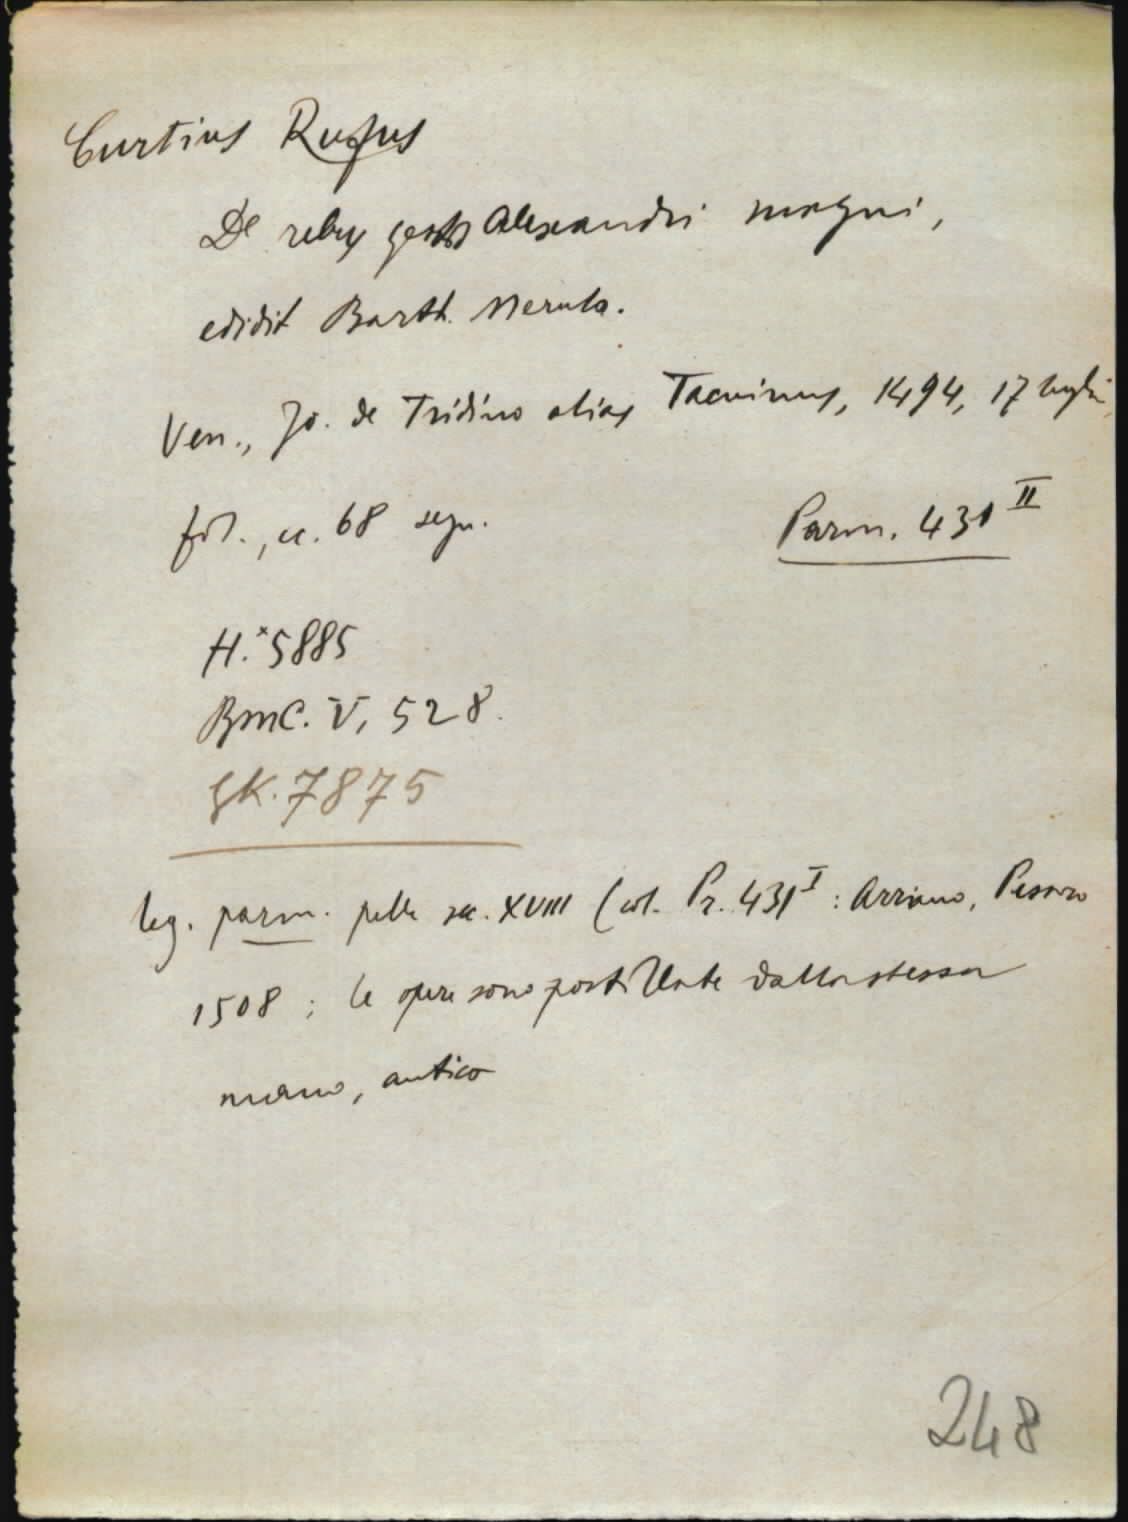 Curtius Rufus
De rebus gestis Alexandri magni,
edidit Barth. Merula.
Ven., Jo. de Tridino alias Tacuinus, 1494, 17 luglio
fol., cc. 68 segn.
Parm. 431 II
H.*5885
BMC. V, 528.
GK. 7875
leg. parm. pelle sec. XVIII (col. Pr. 431 I : Arriano, Pesaro
1508 ; le opere sono postillate dalla stessa
mano, antica
248